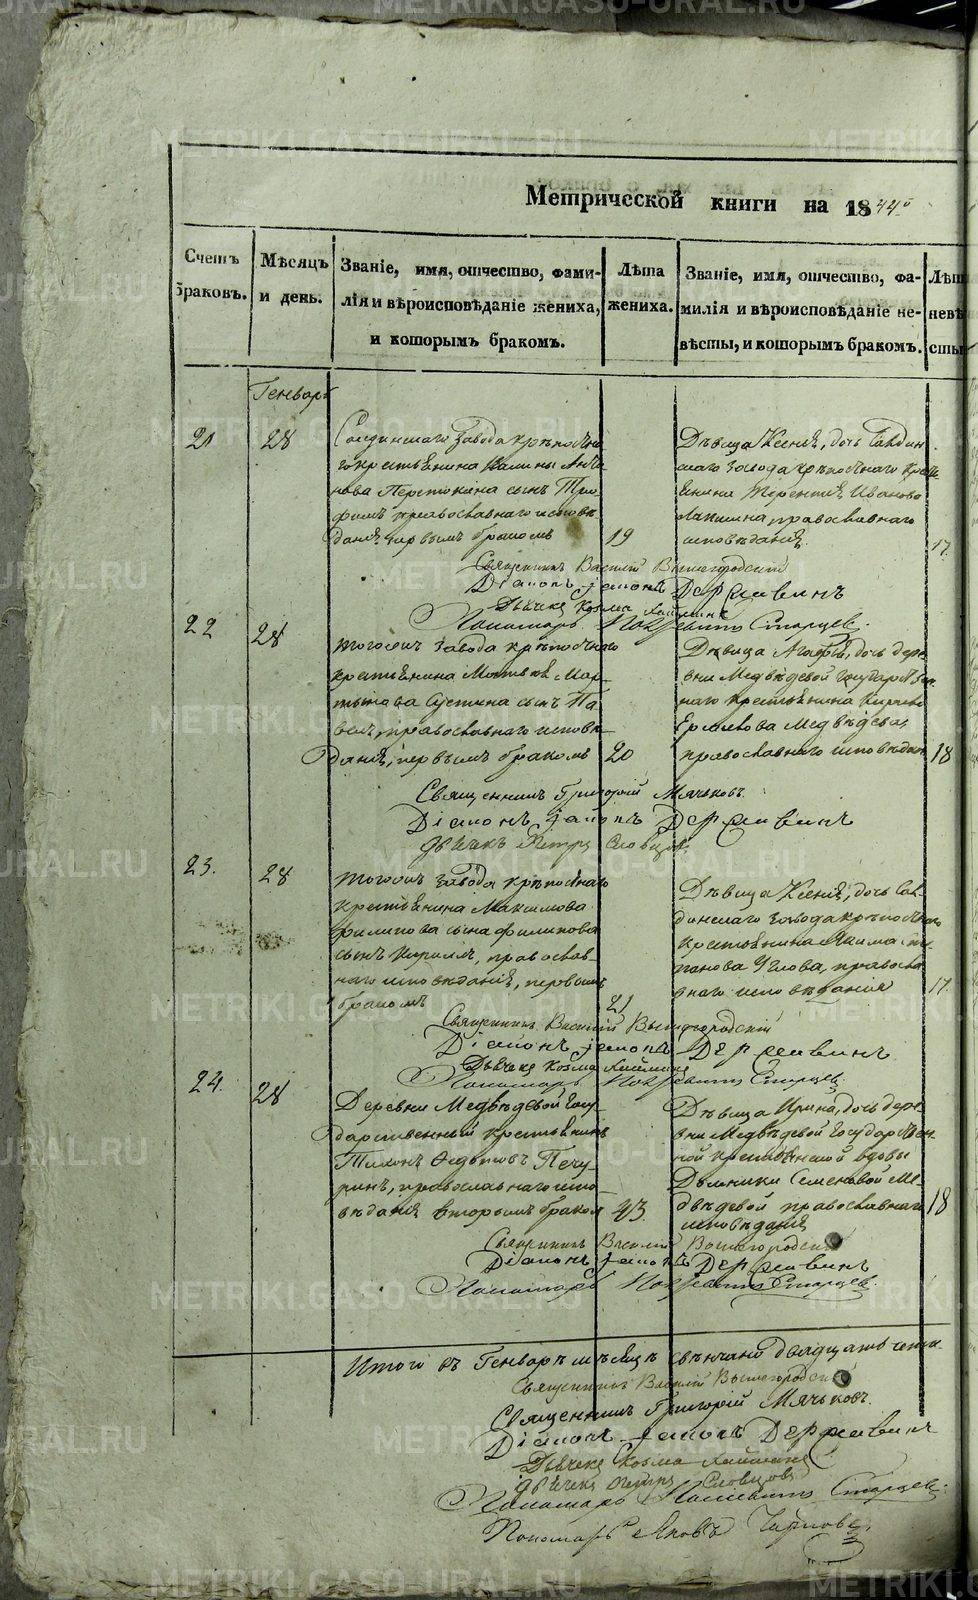 METRIKI.GASO-URAL.RU
Метрической книги на 1844
Счетъ браковъ.
Мѣсяцъ и день.
Званіе, имя, отчество, фами-
лія и вѣроисповѣданіе жениха,
и которымъ бракомъ.
Лѣта
жениха.
Званіе, имя, отчество, фа-
милія и вѣроисповѣданіе не-
вѣсты, и которымъ бракомъ.
Лѣта
невѣ
сты
Генварь
21
28
завода крѣпостна
го крестьянина
сынъ Три
фонъ православнаго исповѣ
данія первымъ бракомъ
19
Дѣвица Ксенія, дочь
завода крѣпостнаго крест
янина Терентія Иванова
православнаго
исповѣданія.
17.
Священникъ Василій Вышегородскій
Діаконъ Іаковъ Державинъ
Дьячекъ Козма
Пономарь Старцев.
22
28
Тогожъ завода крѣпостнаго
крестьянина Матвея Мар
тынова сынъ Па
велъ, православнаго исповѣ
данія, первымъ бракомъ
20
Дѣвица Агафія, дочь дере
вни Медвѣдевой Государствен
наго крестьянина
Ермакова Медвѣдева,
православнаго исповѣдан
18
Священникъ Григорій Мячьковъ.
Діаконъ Іаковъ Державинъ
дьячекъ Петръ Словцовъ
23.
28
Тогожъ завода крѣпостнаго
крестьянина Максимова
Филипова сына Филипова
сынъ Кирилъ, православ-
наго исповѣданія, первымъ
бракомъ
21
Дѣвица Ксенія, дочь Сал-
динскаго завода крѣпостнаго
крестьянина Якима Сте
панова Углова, правосла
внаго исповѣданія
17.
Священникъ Василій Вышегородскій
Діаконъ Іаковъ Державинъ
Дьячекъ Козма
Пономарь Старцев.
24.
28
Деревни Медвѣдевой Госу-
дарственный крестьянинъ
Тихонъ Федотовъ Печу-
ринъ, православнаго испо-
вѣданія вторымъ бракомъ
43.
Дѣвица Ирина, дочь дере
вни Медвѣдевой Государствен-
ной крестьянской вдовы
Семеновой Ме-
двѣдевой православнаго
исповѣданія
18
Священникъ Василій Вышегородскій
Діаконъ Іаковъ Державинъ
Пономарь Старцев.
Итого въ Генварѣ мѣсяцѣ свѣнчано двадцать четы.
Священникъ Василій Вышегородскій
Священникъ Григорій Мячьковъ.
Діаконъ Іаковъ Державинъ
Дьячекъ Козма
дьячекъ Петръ Словцовъ
Пономарь Старцев.
Пономарь Яковъ